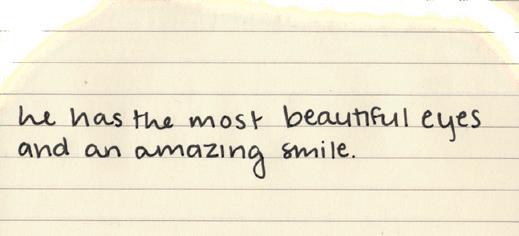 he has the most beautiful eyes
and an amazing smile.